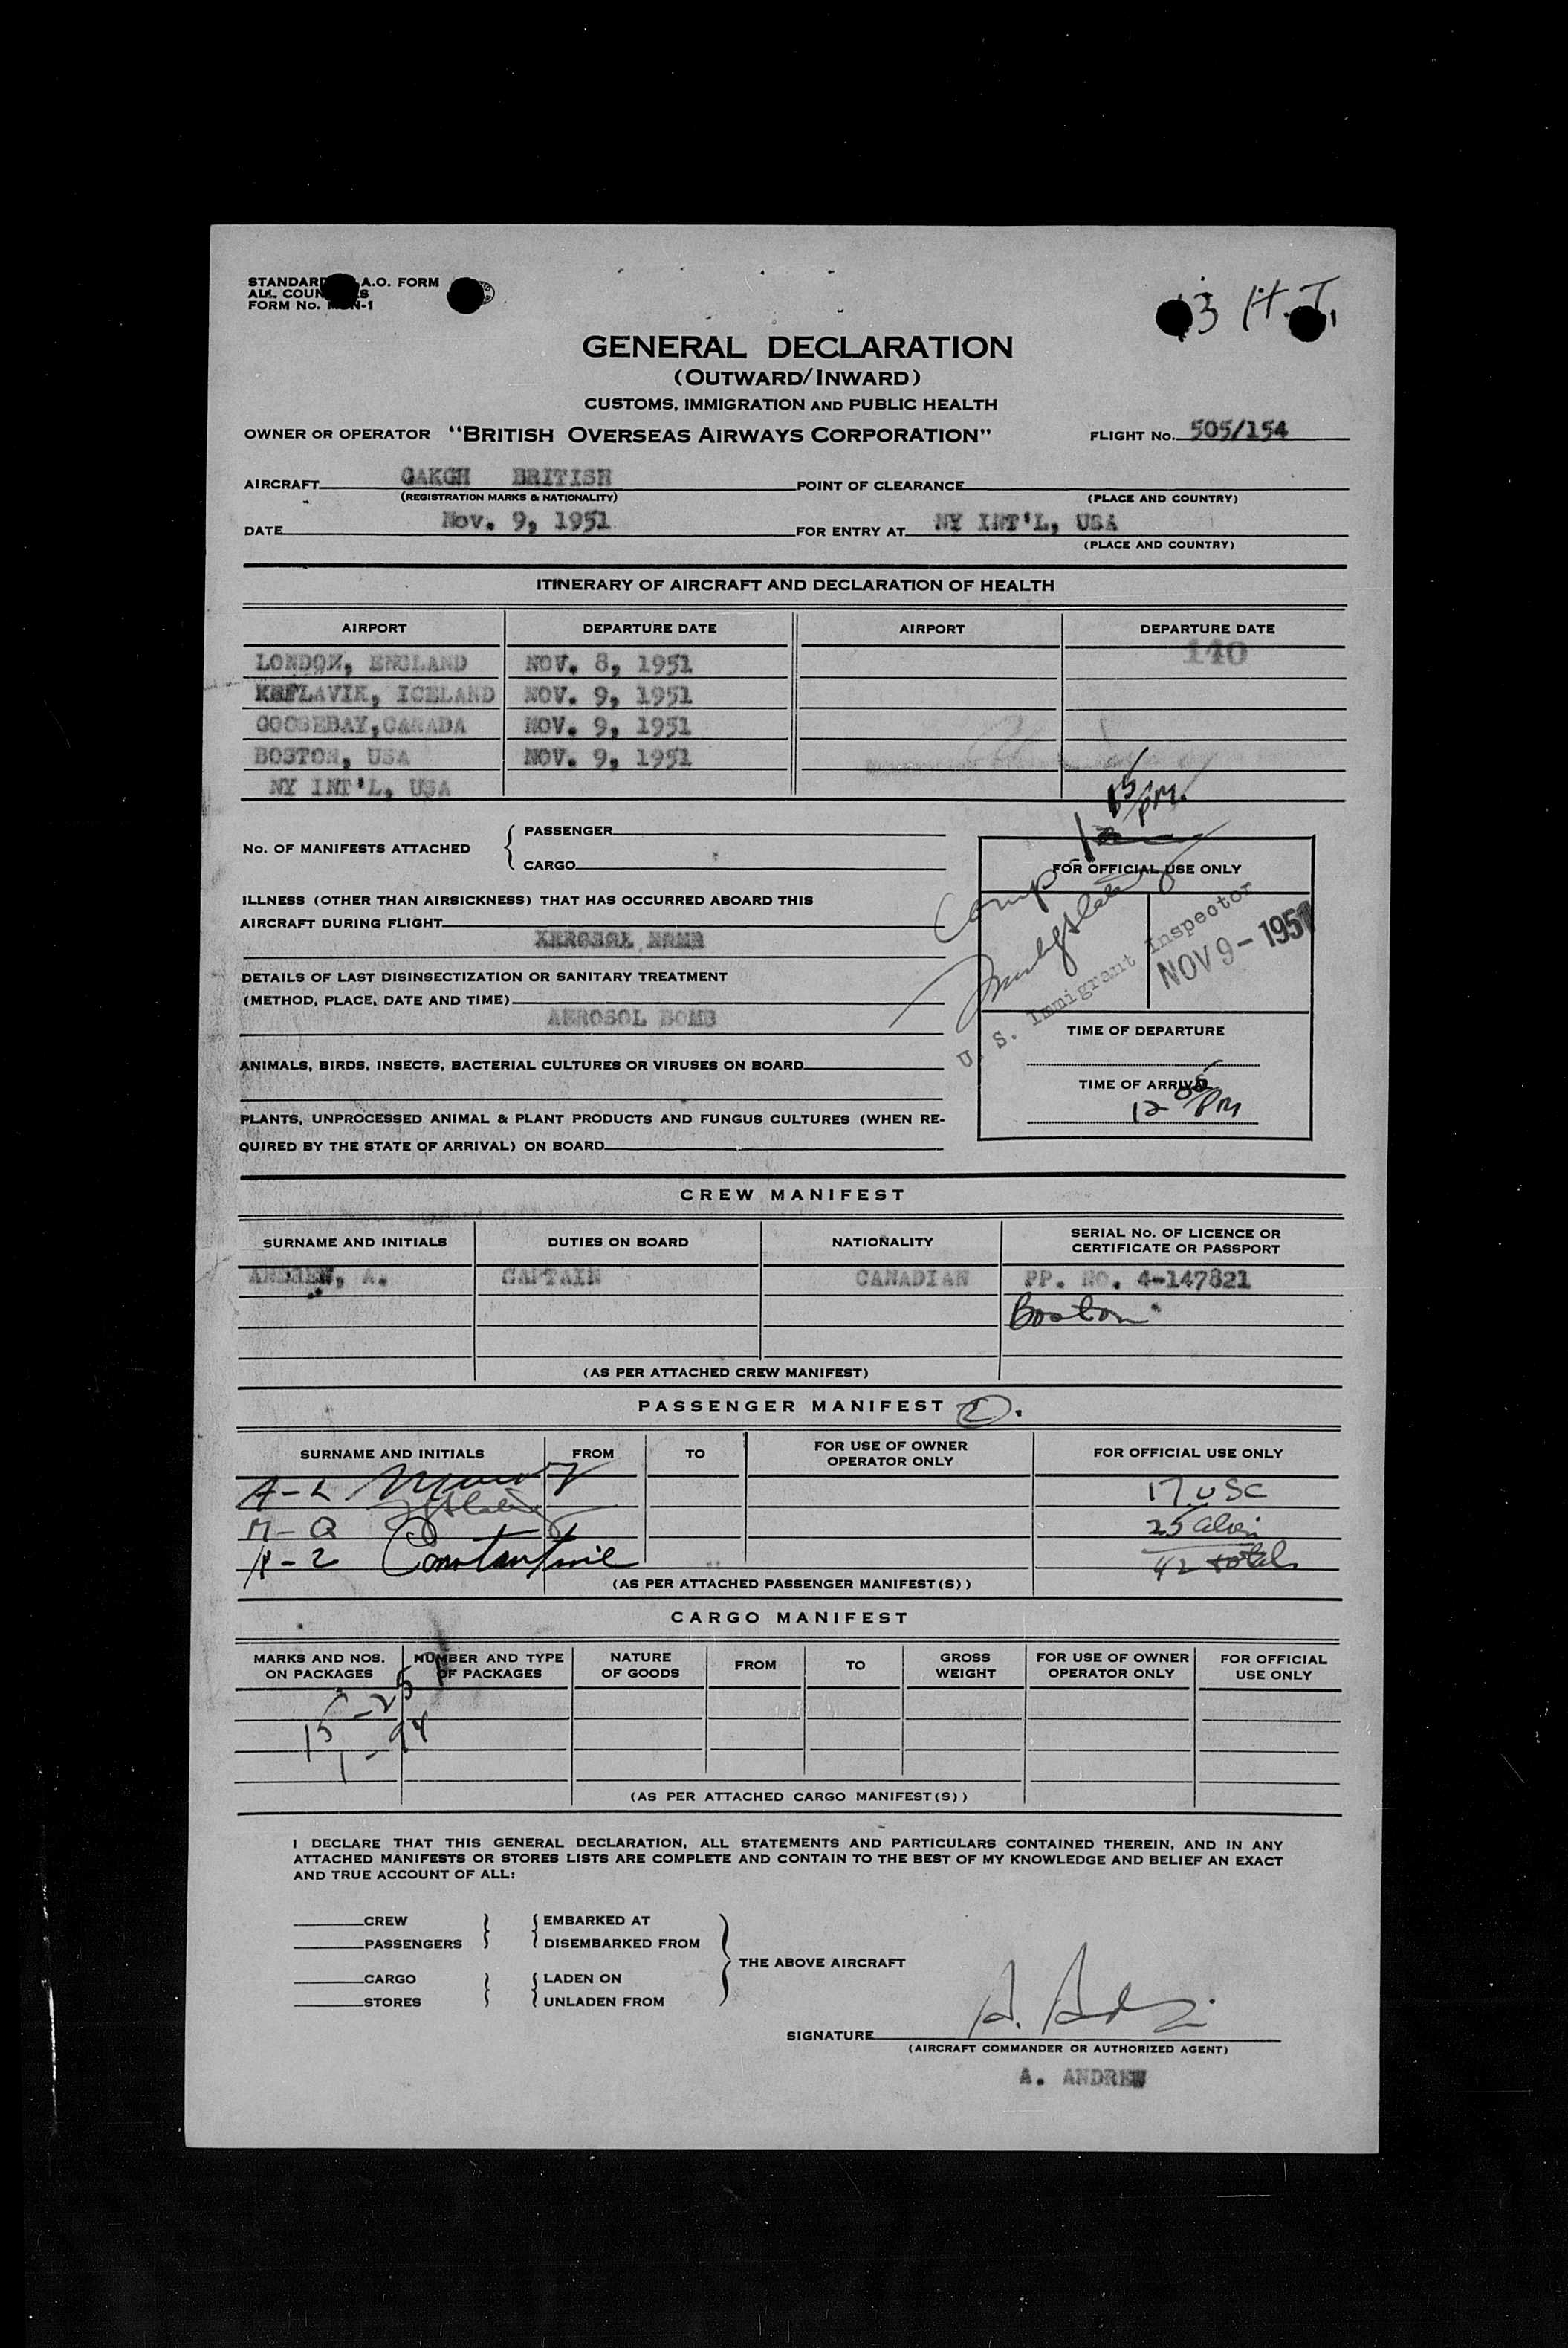 STANDARD A.O. FORM
ALL COUN S
FORM No. N-1
3 H.T.
GENERAL DECLARATION
(OUTWARD/INWARD)
CUSTOMS, IMMIGRATION AND PUBLIC HEALTH
OWNER OR OPERATOR "BRITISH OVERSEAS AIRWAYS CORPORATION" FLIGHT No. 505/154
AIRCRAFT GAKGH BRITISH POINT OF CLEARANCE
(REGISTRATION MARKS & NATIONALITY) (PLACE AND COUNTRY)
DATE Nov. 9, 1951 FOR ENTRY AT NY INT'L, USA
(PLACE AND COUNTRY)
ITINERARY OF AIRCRAFT AND DECLARATION OF HEALTH
AIRPORT DEPARTURE DATE AIRPORT DEPARTURE DATE
LONDON, ENGLAND NOV. 8, 1951 140
KEFLAVIK, ICELAND NOV. 9, 1951
GOOSEBAY, CANADA NOV. 9, 1951
BOSTON, USA NOV. 9, 1951
NY INT'L, USA
PM.
No. OF MANIFESTS ATTACHED
PASSENGER
CARGO
FOR OFFICIAL USE ONLY
Comp
U. S. Immigrant Inspector
NOV 9 - 1951
ILLNESS (OTHER THAN AIRSICKNESS) THAT HAS OCCURRED ABOARD THIS
AIRCRAFT DURING FLIGHT
DETAILS OF LAST DISINSECTIZATION OR SANITARY TREATMENT
(METHOD, PLACE, DATE AND TIME)
AEROSOL BOMB
TIME OF DEPARTURE
ANIMALS, BIRDS, INSECTS, BACTERIAL CULTURES OR VIRUSES ON BOARD
TIME OF ARRIVAL
12 05 PM
PLANTS, UNPROCESSED ANIMAL & PLANT PRODUCTS AND FUNGUS CULTURES (WHEN RE-
QUIRED BY THE STATE OF ARRIVAL) ON BOARD
CREW MANIFEST
SURNAME AND INITIALS DUTIES ON BOARD NATIONALITY SERIAL No. OF LICENCE OR
CERTIFICATE OR PASSPORT
ANDREW, A. CAPTAIN CANADIAN PP. NO. 4-147821
Boston
(AS PER ATTACHED CREW MANIFEST)
PASSENGER MANIFEST
SURNAME AND INITIALS FROM TO FOR USE OF OWNER
OPERATOR ONLY FOR OFFICIAL USE ONLY
A-L 17 USC
M-Q 25 alien
Constantine 42 total
(AS PER ATTACHED PASSENGER MANIFEST(S))
CARGO MANIFEST
MARKS AND NOS.
ON PACKAGES
NUMBER AND TYPE
OF PACKAGES
NATURE
OF GOODS
FROM
TO
GROSS
WEIGHT
FOR USE OF OWNER
OPERATOR ONLY
FOR OFFICIAL
USE ONLY
15 - 25
1 - 94
(AS PER ATTACHED CARGO MANIFEST(S))
I DECLARE THAT THIS GENERAL DECLARATION, ALL STATEMENTS AND PARTICULARS CONTAINED THEREIN, AND IN ANY
ATTACHED MANIFESTS OR STORES LISTS ARE COMPLETE AND CONTAIN TO THE BEST OF MY KNOWLEDGE AND BELIEF AN EXACT
AND TRUE ACCOUNT OF ALL:
CREW EMBARKED AT
PASSENGERS DISEMBARKED FROM
THE ABOVE AIRCRAFT
CARGO LADEN ON
STORES UNLADEN FROM
SIGNATURE
(AIRCRAFT COMMANDER OR AUTHORIZED AGENT)
A. ANDREW